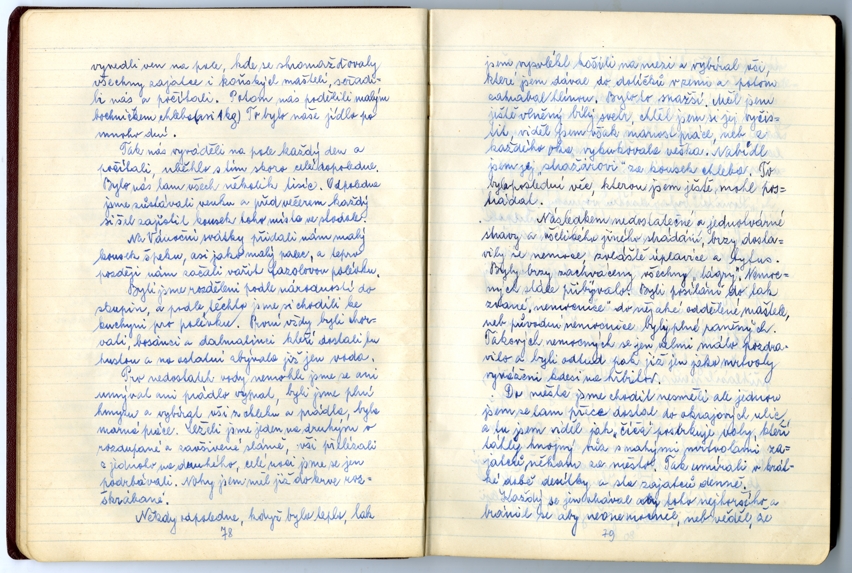 vyvedli ven na pole, kde se shromažďovaly
všechny zajatce i koňských maštelí, seřadi-
li nás a počítali. Potom nás podělili malým
bochníčkem chleba (asi 1 kg) To bylo naše jídlo po
mnoho dní.
Tak nás vyváděli na pole každý den a
počítali, uběhlo s tím skoro celé dopoledne.
Bylo nás tam všech několik tisíc. Odpoledne
jsme zůstávali venku a před večerem každý
si šel zajistit kousek toho místa ve stodole.
Na Vánoční svátky přidali nám malý
kousek špeku, asi jako malý palec, a teprv
později nám začali vařit fazolovou polévku.
Byli jsme rozděleni podle národností do
skupin, a podle těchto jsme si chodili ke
kuchyni pro polévku. První vždy byli chor-
vati, bosánci a dalmatinci kteří dostali tu
hustou a na ostatní zbývala již jen voda.
Pro nedostatek vody nemohli jsme se ani
umýval ani prádlo vyprat, byli jsme plní
hmyzu a vybírat vši z chleku a prádla, byla
marná práce. Leželi jsme jeden na druhým v
rozdupané a zavšivené slámě, vši přelézali
z jednoho na druhého, celé noci jsme se jen
podrbávali. Nohy jsem měl již do krve roz-
škrábané.
Někdy odpoledne, když bylo teplo, tak
78
jsem vysvlékl košili na mezi a vybíral vši,
které jsem dával do dolíčků v zemi a potom
zahrabal hlínou. Bylo to snažší. Měl jsem
ještě vlněný bílý svetr, chtěl jsem si jej vyčis-
tit, viděl jsem však marnost práce, neb z
každého oka vykukovala veška. Nabídl
jsem jej „stražárovi" za kousek chleba. To
byla poslední věc, kterou jsem ještě mohl pos-
trádal.
Následkem nedostatečné a jednotvárné
stravy a všelikého jiného strádání, brzy dosta-
vily se nemoce, zvláště úplavice a tyfus.
Byly brzy zachváceny všechny „lágry". Nemoc-
ných stále přibývalo. Byli posíláni do tak
zvané „nemocnice" do nějaké oddělené maštele,
neb původní nemocnice byly plné raněných.
Takových nemocných se jen velmi málo pozdra-
vilo a byli odtud pak již jen jako mrtvoly
vyváženi kdesi na hřbitov.
Do města jsme chodit nesměli ale jednou
jsem se tam přece dostal do okrajových ulic,
a tu jsem viděl jak „čiča" postrkuje voly kteří
táhly hnojný vůz s nahými mrtvolami za-
jatců někam za město. Tak umírali v krát-
ké době desítky a sta zajatců denně.
Každý se jen obával aby toho nejhoršího a
bránil se aby neonemocněl, neb věděl, že
79